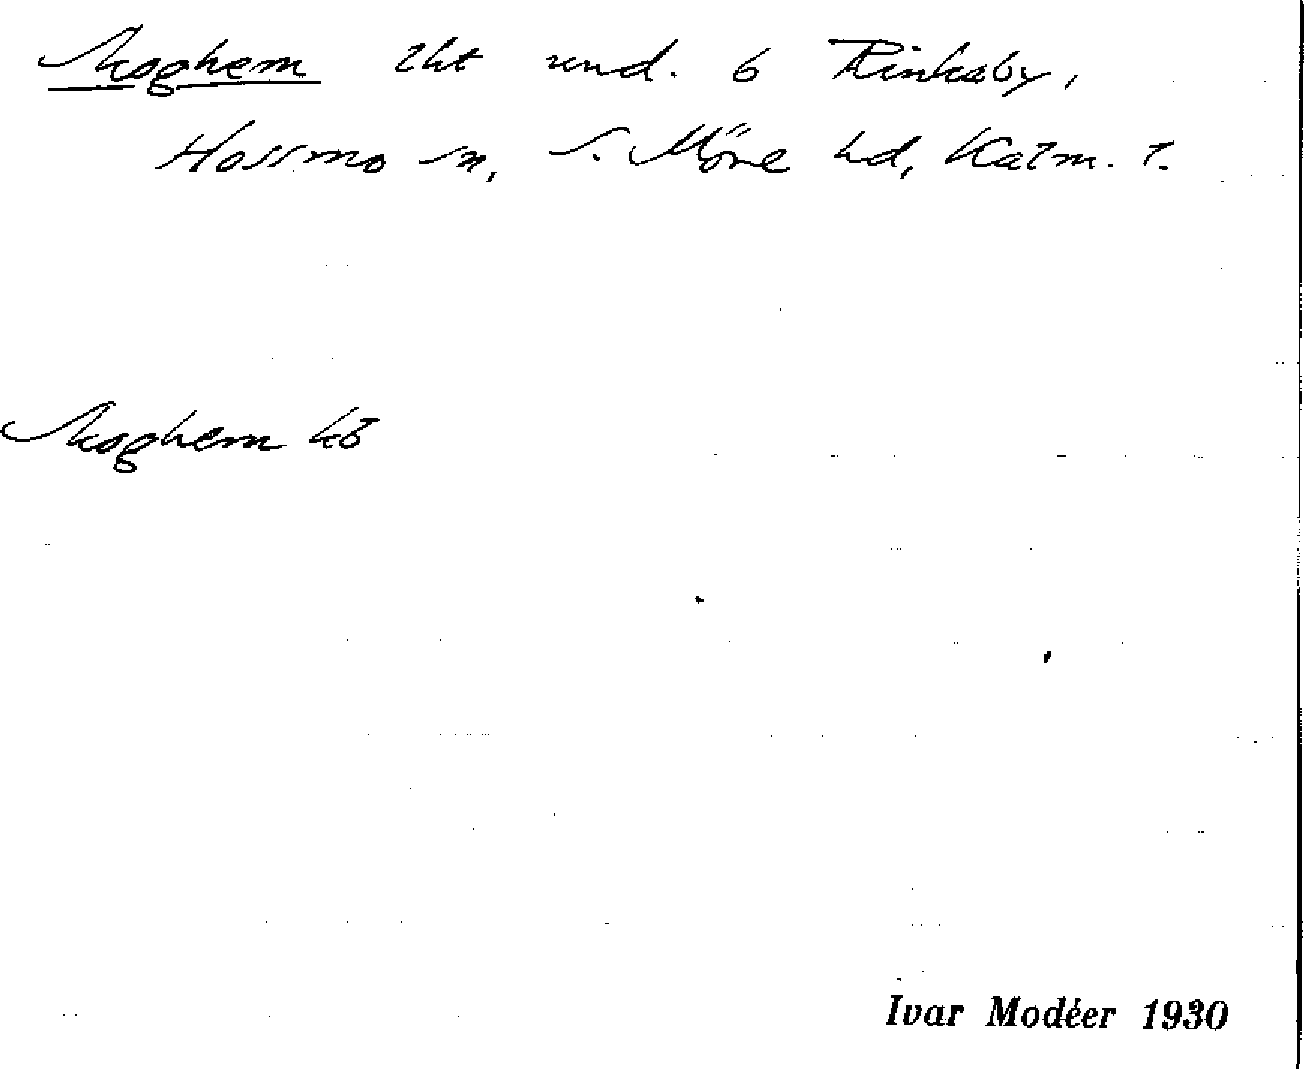 Skoghem lht und. 6 Rinkaby,
Hossmo sn, S. Möre hd, Kalm. l.
Skoghem kb
Ivar Modéer 1930